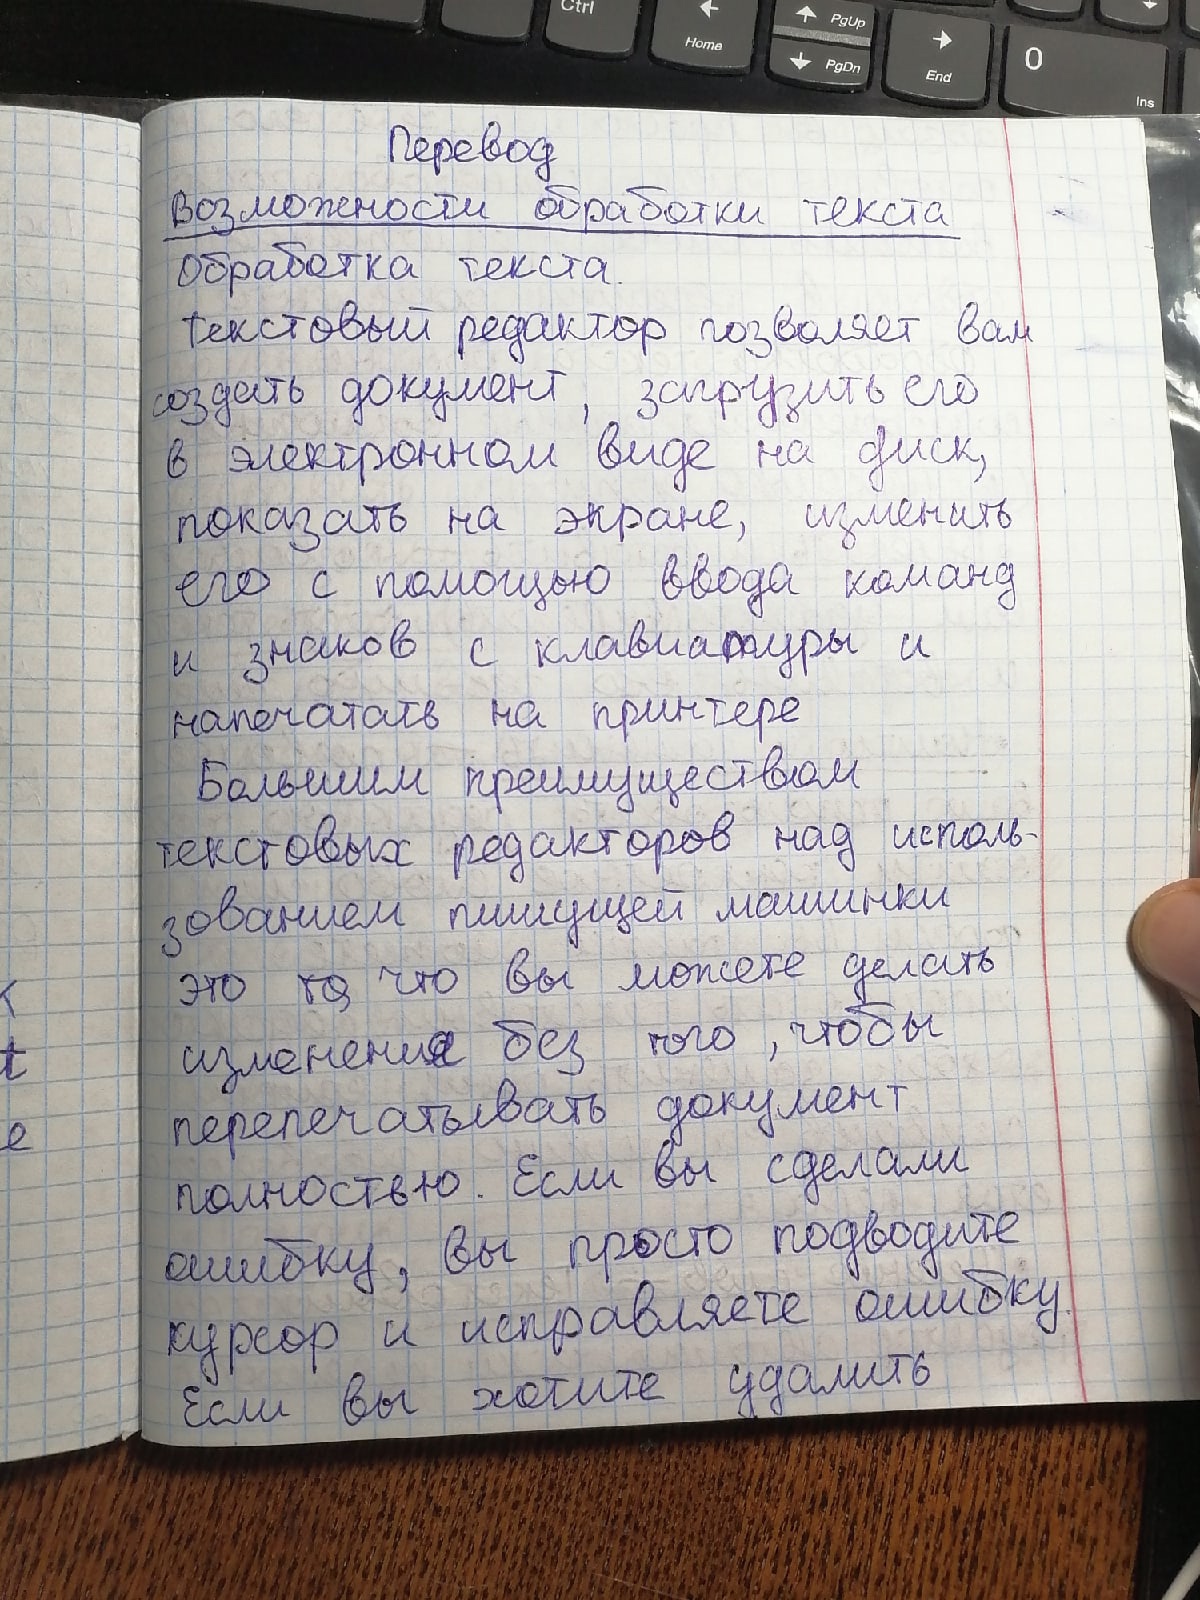 Ctrl
Home
PgUp
PgDn
End
0
Ins
Перевод
Возможности обработки текста
Обработка текста.
Текстовый редактор позволяет вам
создать документ, загрузить его
в электронном виде на диск,
показать на экране, изменить
его с помощью ввода команд
и знаков с клавиатуры и
напечатать на принтере
Большим преимуществом
текстовых редакторов над исполь-
зованием пишущей машинки
это то, что вы можете делать
изменения без того, чтобы
перепечатывать документ
полностью. Если вы сделали
ошибку, вы просто подводите
курсор и исправляете ошибку.
Если вы хотите удалить
t
е